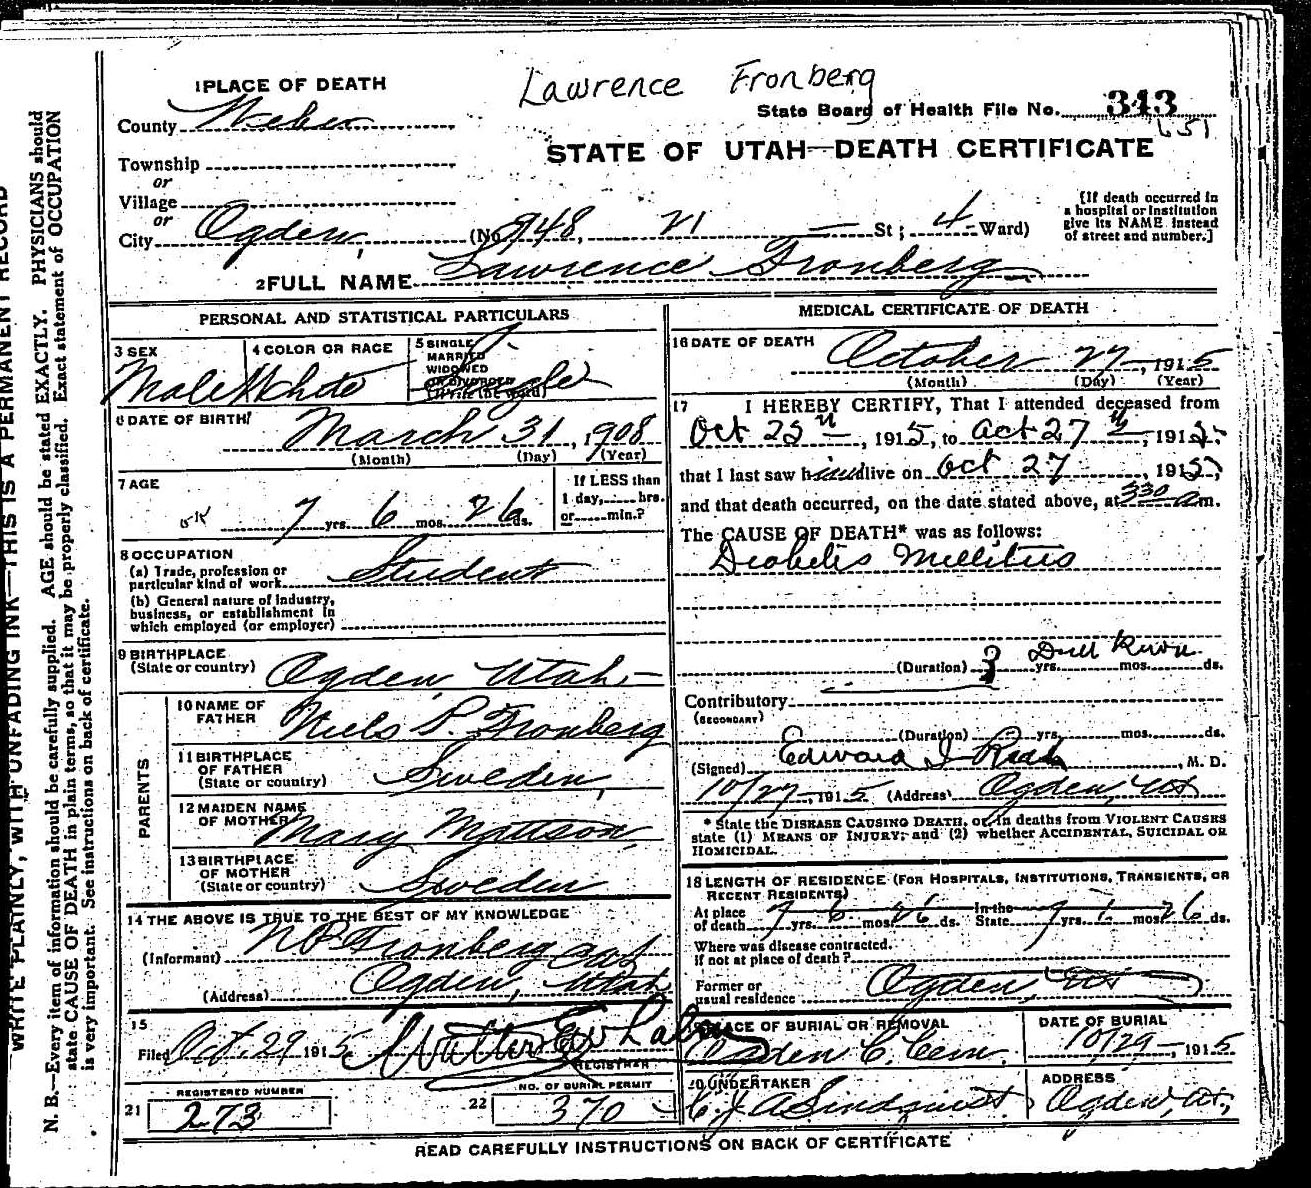 Lawrence Fronberg
1 PLACE OF DEATH
State Board of Health File No. 343
651
County Weber
STATE OF UTAH—DEATH CERTIFICATE
Township
or
Village
or
City Ogden, (No 948, 21 — St; 4 Ward)
[If death occurred in a hospital or institution give its NAME instead of street and number.]
2 FULL NAME Lawrence Fronberg
PERSONAL AND STATISTICAL PARTICULARS
3 SEX Male
4 COLOR OR RACE White
5 SINGLE MARRIED WIDOWED OR DIVORCED (Write the word) Single
6 DATE OF BIRTH March 31, 1908
(Month) (Day) (Year)
7 AGE 7 yrs. 6 mos. 26 ds.
If LESS than 1 day, hrs. or min.?
8 OCCUPATION
(a) Trade, profession or particular kind of work Student
(b) General nature of industry, business, or establishment in which employed (or employer)
9 BIRTHPLACE (State or country) Ogden, Utah
PARENTS
10 NAME OF FATHER Niels P. Fronberg
11 BIRTHPLACE OF FATHER (State or country) Sweden,
12 MAIDEN NAME OF MOTHER Mary Mattson,
13 BIRTHPLACE OF MOTHER (State or country) Sweden
14 THE ABOVE IS TRUE TO THE BEST OF MY KNOWLEDGE
(Informant) N P Fronberg
(Address) Ogden, Utah
15
Filed Oct. 29 1915
REGISTRAR
REGISTERED NUMBER
21 273
NO. OF BURIAL PERMIT
22 370
MEDICAL CERTIFICATE OF DEATH
16 DATE OF DEATH October 27, 1915
(Month) (Day) (Year)
17 I HEREBY CERTIFY, That I attended deceased from
Oct 25th, 1915, to Oct 27th, 1915
that I last saw him alive on Oct 27, 1915,
and that death occurred, on the date stated above, at 3 30 a m.
The CAUSE OF DEATH* was as follows:
Diabetis Mellitus
(Duration) ? yrs. Don't Know mos. ds.
Contributory
(SECONDARY)
(Duration) yrs. mos. ds.
(Signed) Edward I Rich, M. D.
10/27, 1915 (Address) Ogden, Ut
* State the DISEASE CAUSING DEATH, or, in deaths from VIOLENT CAUSES state (1) MEANS OF INJURY; and (2) whether ACCIDENTAL, SUICIDAL OR HOMICIDAL.
18 LENGTH OF RESIDENCE (FOR HOSPITALS, INSTITUTIONS, TRANSIENTS, OR RECENT RESIDENTS)
At place of death 7 yrs. 6 mos. 26 ds. In the State 7 yrs. mos. 26 ds.
Where was disease contracted. if not at place of death?
Former or usual residence Ogden, Ut
19 PLACE OF BURIAL OR REMOVAL Ogden C. Cem.
DATE OF BURIAL 10/29, 1915
20 UNDERTAKER C. J. A Lindquist
ADDRESS Ogden, Ut,
READ CAREFULLY INSTRUCTIONS ON BACK OF CERTIFICATE
WRITE PLAINLY, WITH UNFADING INK—THIS IS A PERMANENT RECORD
N. B.—Every item of information should be carefully supplied. AGE should be stated EXACTLY. PHYSICIANS should
state CAUSE OF DEATH in plain terms, so that it may be properly classified. Exact statement of OCCUPATION
is very important. See instructions on back of certificate.